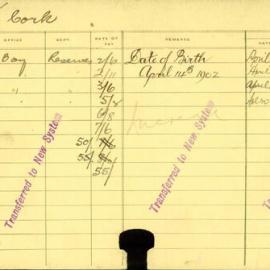 Cork
OFFICE DEPT. RATE OF PAY REMARKS DATE
Boy Reserve 2/6 Date of Birth April
" " 2/11 April 14th 1902 April
" " 3/6 April
5/
6/8
7/6
50/
55/
55/
Transferred to New System
Transferred to New System
Transferred to New System